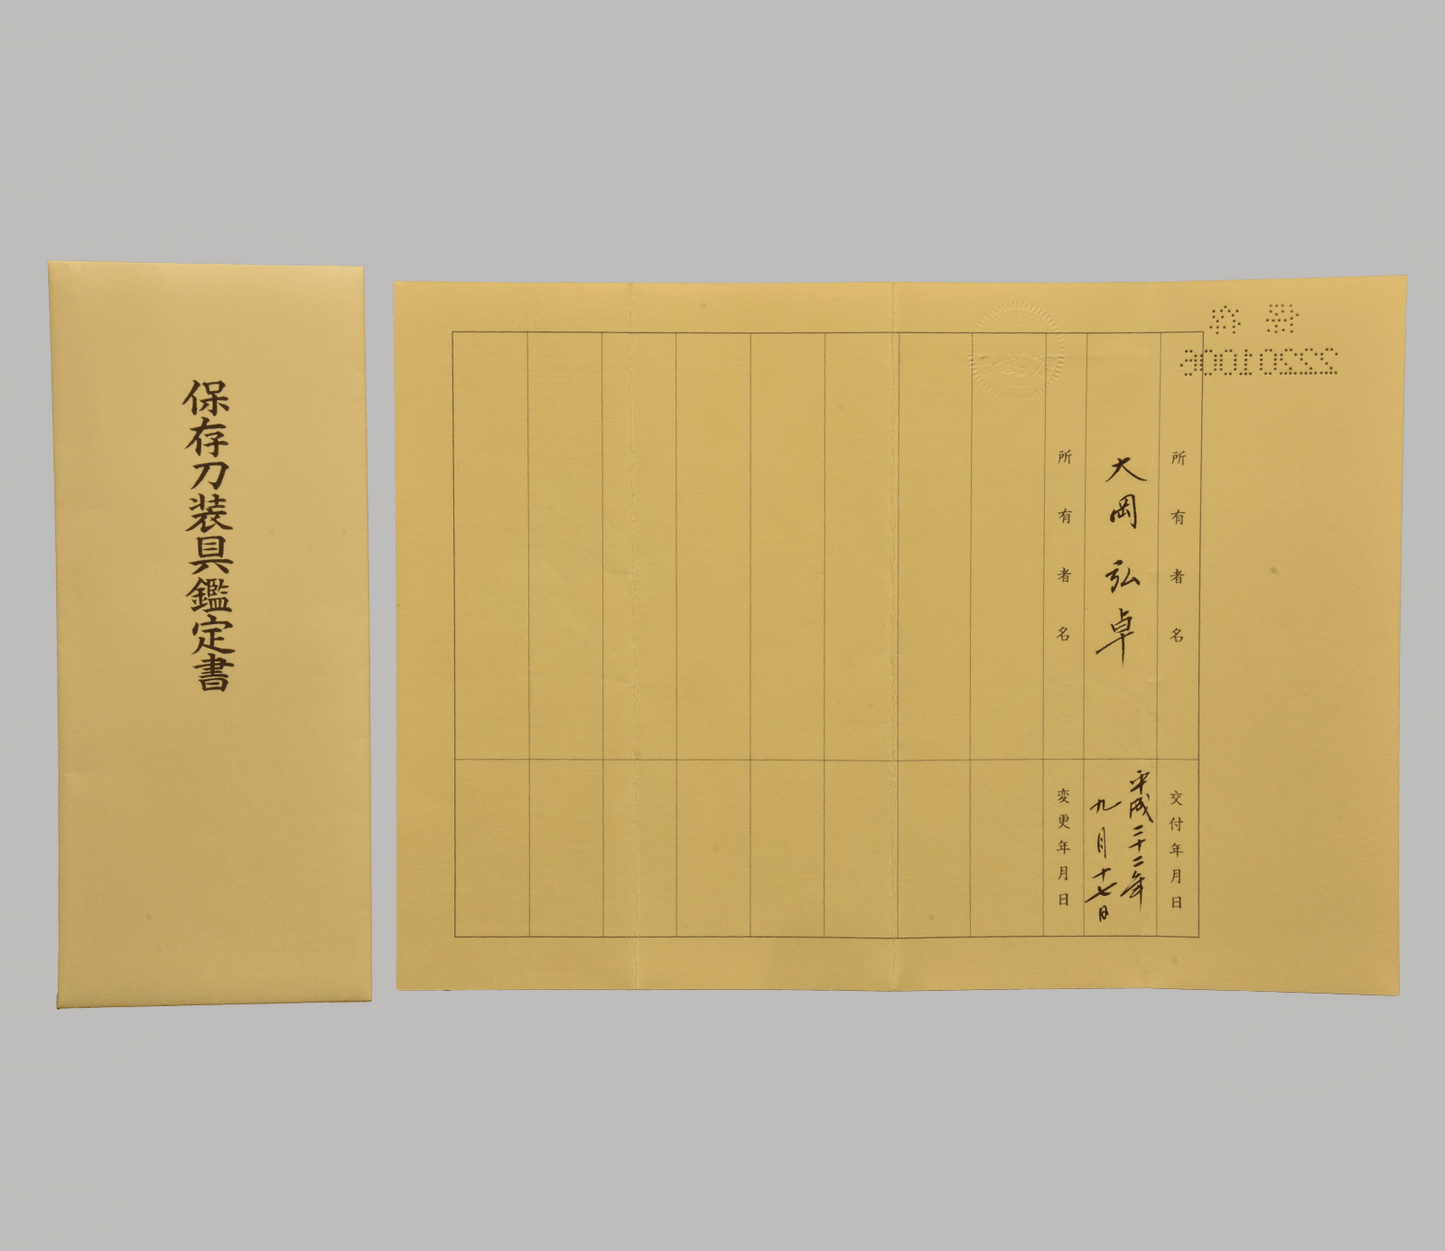 保存刀装具鑑定書
所有者名
大岡弘卓
所有者名
交付年月日
平成二十二年
九月十七日
変更年月日